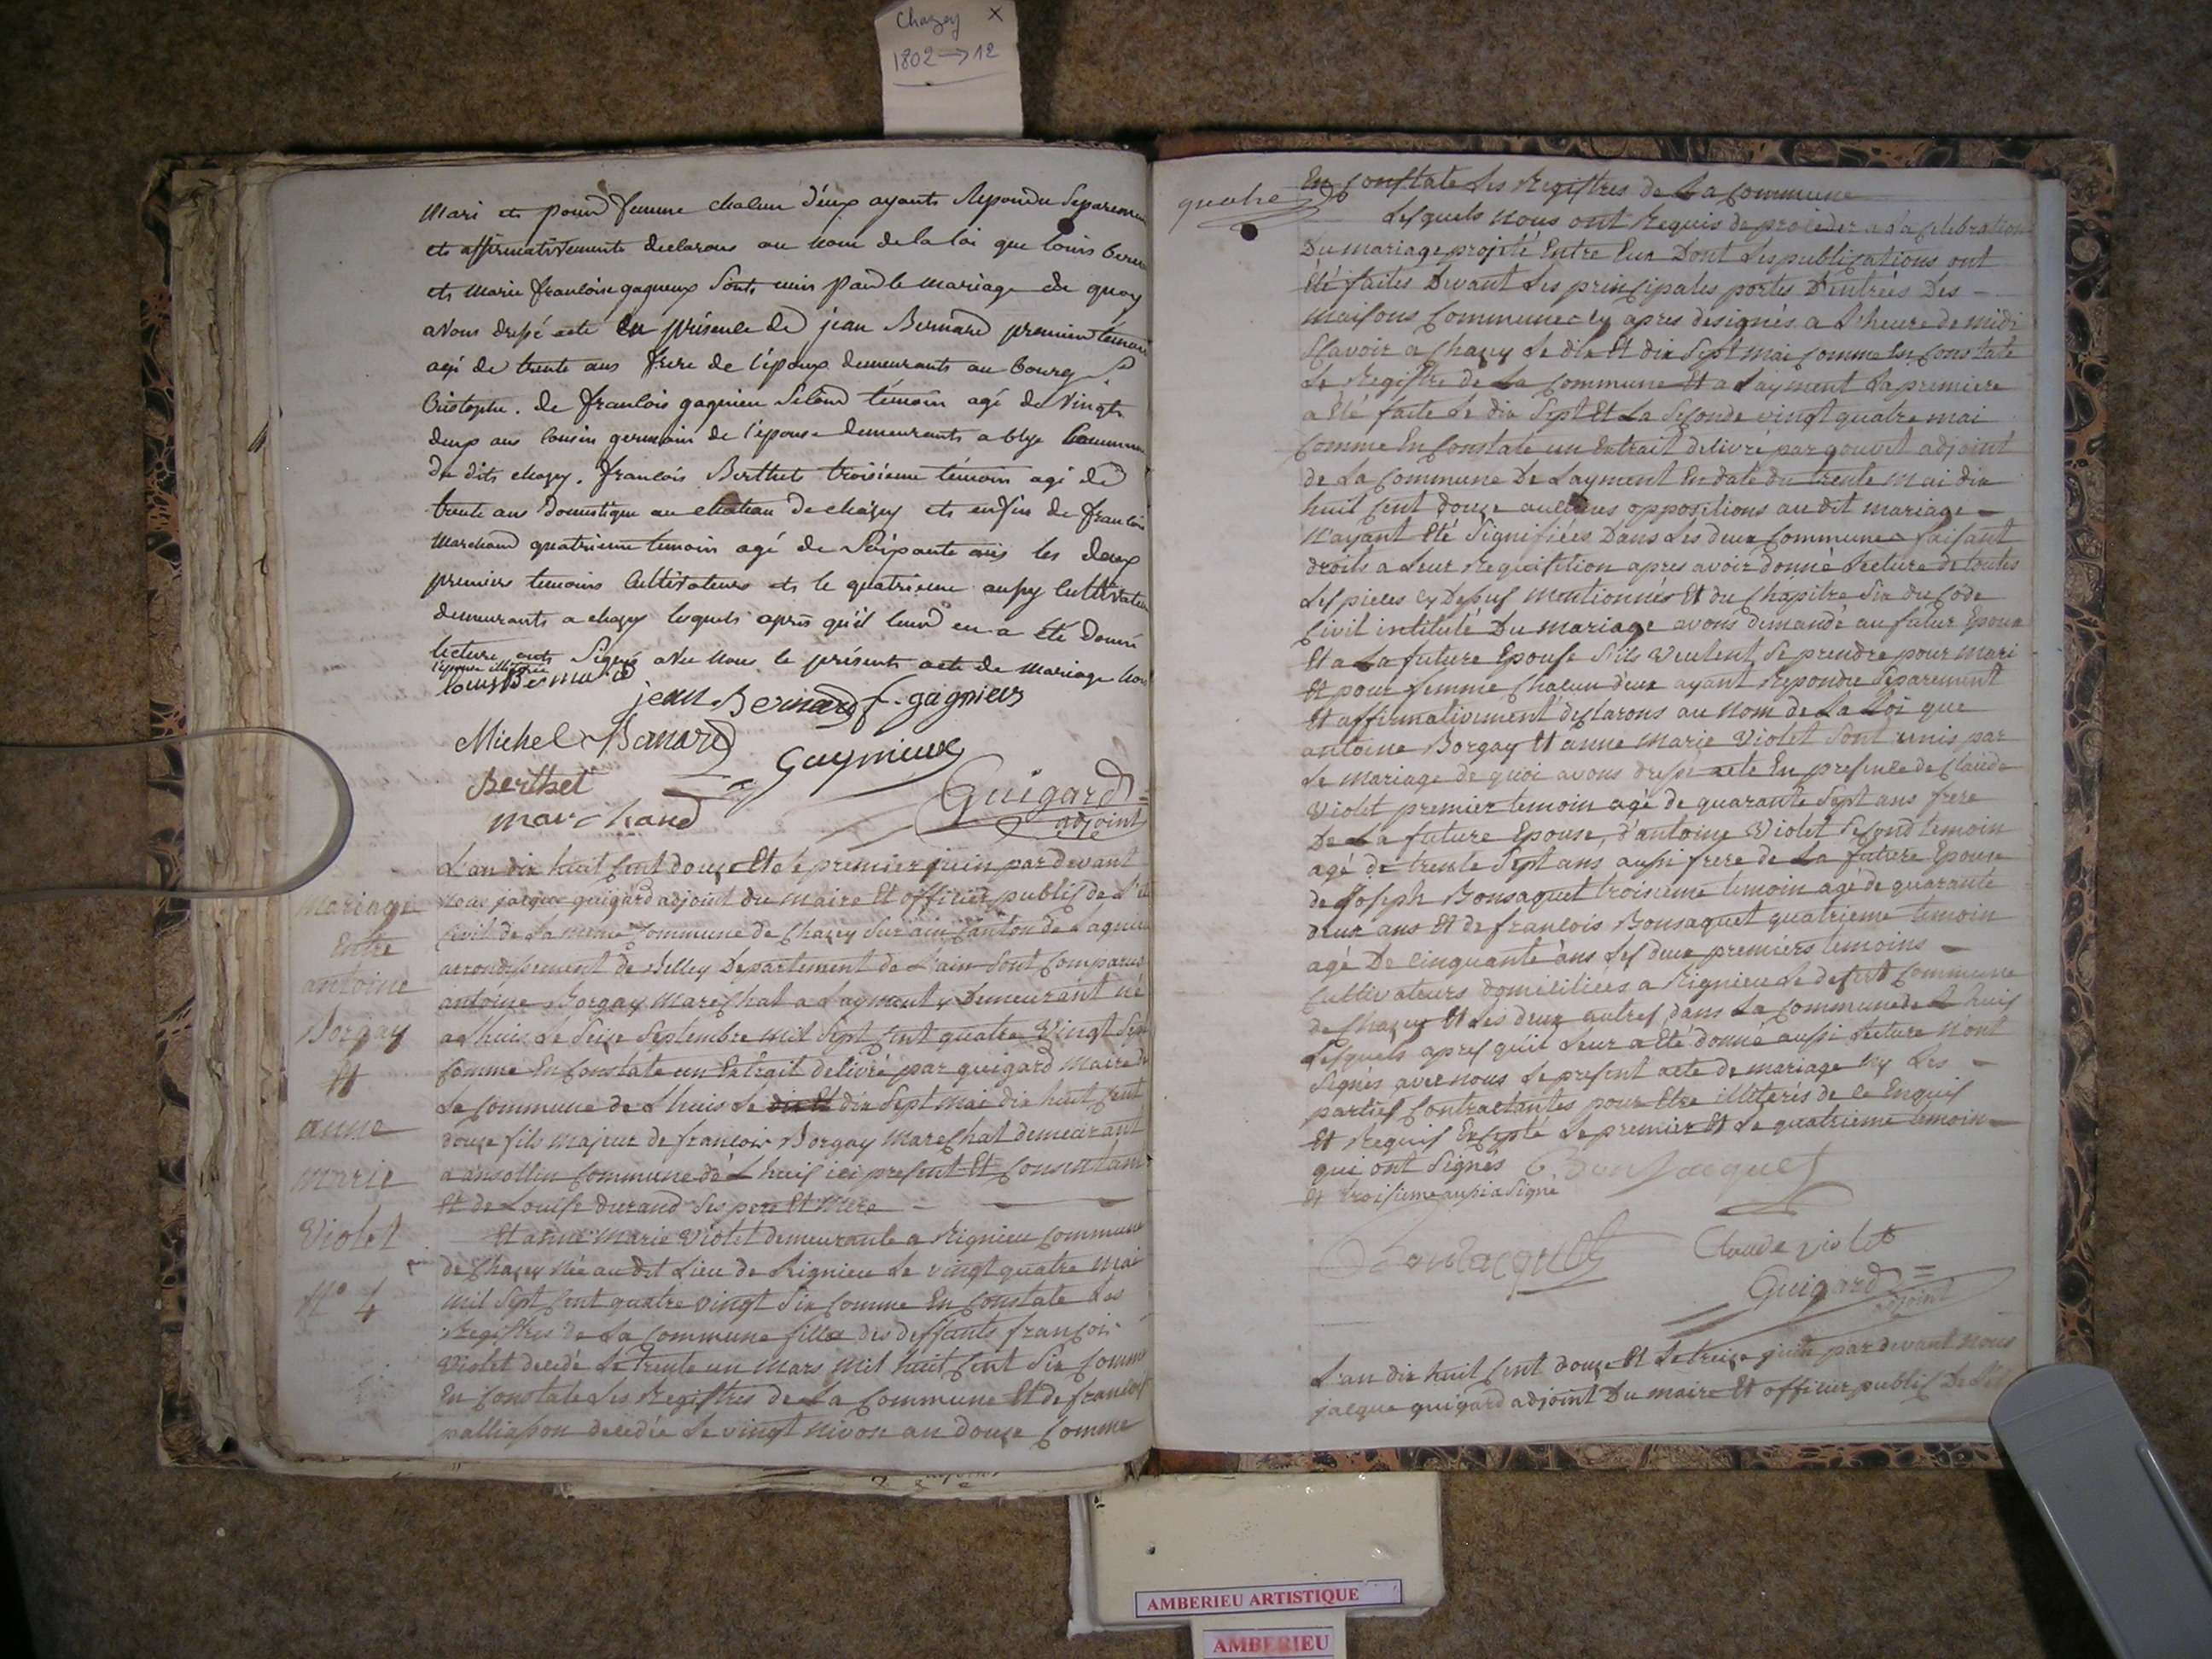 Chazey X
1802 → 12
Mari et pour femme chacun d'eux ayants Repondu Separemen
et affirmativements declarons au nom de la loi que louis
et marie francoise gagneux Sonts unis par le mariage de quoy
avons dressé acte en présence de jean Bernard premier témoin
agé de trente ans frere de l'époux demeurants au bourg St
Cristophe. de francois gagnieu Second témoin agé de Vingt
deux ans cousin germain de l'epouse demeurants a blye Commune
du dits chazey. francois Berthet troisieme témoin agé de
trente ans domestique au chateau de chazey ets enfin de francois
Marchand quatrieme temoin agé de Soixante ans les deux
premiers temoins Cultivateurs et le quatrieme aussy Cultivateur
demeurants a chazey lesquels après qu'il leur en a été donné
lecture onts Signé avec nous le présents acte de mariage
l'epouse illiterée
louis Bernard
jean Bernard f. gagnieux
Michel Banard
Gaynieux
Berthet
marchand
Guigard
adjoint
L'an dix huit cent douze Et le premier juin par devant
Nous jacque guigard adjoint du maire Et officier public de L'
Civil de la meme Commune de Chazey Sur ain Canton de Lagnieu
arrondissement de Belley Departement de L'ain Sont Comparus
antoine Borgay Marechal a Laymant y Demeurant né
a Lhuis Le Seize Septembre Mil Sept Cent quatre Vingt Sept
Comme En Constate un Extrait delivré par guigard Maire de
La Commune de Lhuis Le dix Et dix Sept mai dix huit Cent
douze fils majeur de francois Borgay Marechal demeurant
a ansolin Commune de Lhuis ici present Et Consentant
Et de Louise durand Ses pere Et Mere
Et anne Marie Violet demeurante a Rignieu Commune
de Chazey Née au dit Lieu de Rignieu Le vingt quatre Mai
Mil Sept Cent quatre vingt Six Comme En Constate Les
Registres de La Commune fille des deffants francois
Violet decedé Le trente un Mars Mil huit Cent Six Comme
En Constate Les Registres de La Commune Et de francoise
palliasson decedée Le vingt Nivose an douze Comme
Mariage
Entre
antoine
Borgay
Et
anne
marie
Violet
N° 4
quatre
En Constate Les Registres de La Commune
Lesquels Nous ont Requis de proceder a La Celebration
Du mariage projeté Entre Eux Dont Les publications ont
Eté faites Devant Les principales portes D'entrées Des
Maisons Communes Cy apres designés a L'heure de midi
Scavoir a Chazey Le dix Et dix Sept Mai Comme En Constate
Le Registre de La Commune Et a Layment La premiere
a Eté faite Le dix Sept Et La Seconde vingt quatre mai
Comme En Constate un Extrait delivré par gouvet adjoint
de La Commune De Layment En date du trente Mai dix
huit Cent douze aucunes oppositions au dit mariage
N'ayant Eté Signifiées Dans Les deux Communes faisant
droits a Leur Requisition apres avoir donné Lecture de toutes
Les pieces Cy Dessus Mentionnés Et du Chapitre Six du Code
Civil intitulé Du mariage avons demandé au futur Epoux
Et a La future Epouse S'ils Veulent Se prendre pour Mari
Et pour femme Chacun d'eux ayant Repondu Séparement
Et affirmativement déclarons au Nom de La Loi que
antoine Borgay Et anne Marie Violet Sont unis par
Le Mariage de quoi avons dressé acte En presence de Claude
Violet premier temoin agé de quarante Sept ans frere
De La future Epouse, d'antoine Violet Second temoin
agé de trente Sept ans aussi frere de La future Epouse
de Joseph Bonsaquet troisieme temoin agé de quarante
deux ans Et de francois Bonsaquet quatrieme temoin
agé De Cinquante ans Les deux premiers temoins
Cultivateurs domicilies a Rignieu Le desert Commune
de Chazey Et Les deux autres dans La Commune de Lhuis
Lesquels apres qu'il Leur a Eté donné aussi Lecture N'ont
Signés avec nous Le present acte de mariage Ny Les
parties Contractantes pour Etre illiterés de Ce Enquis
Et Requis Excepté Le premier Et Le quatrieme temoin
qui ont Signés
Et troisieme aussi a Signé
Bonsacquet
Bonsacquet
Claude violet
Guigard
adjoint
L'an dix huit Cent douze Et Le treize juin par devant Nous
jacque guigard adjoint Du maire Et officier public De L'
AMBERIEU ARTISTIQUE
AMBERIEU